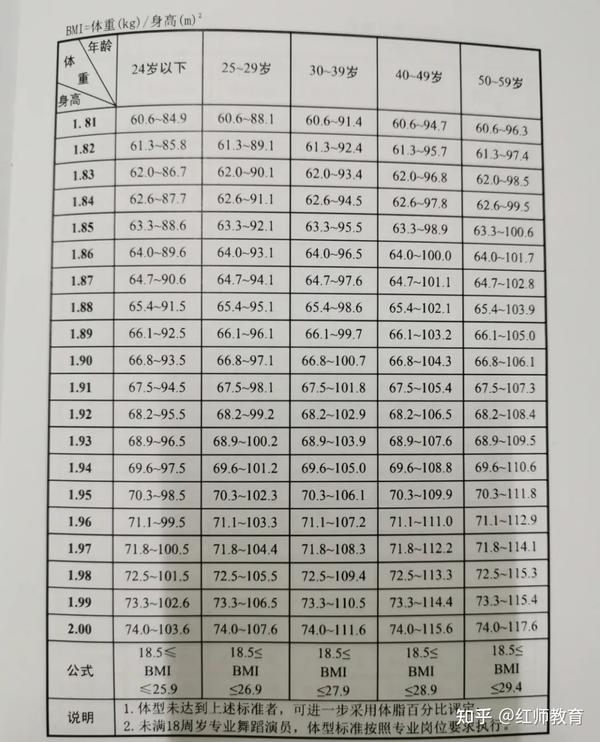 BMI=体重(kg)/身高(m)²
年龄 体重 身高 24岁以下 25~29岁 30~39岁 40~49岁 50~59岁
1.81 60.6~84.9 60.6~88.1 60.6~91.4 60.6~94.7 60.6~96.3
1.82 61.3~85.8 61.3~89.1 61.3~92.4 61.3~95.7 61.3~97.4
1.83 62.0~86.7 62.0~90.1 62.0~93.4 62.0~96.8 62.0~98.5
1.84 62.6~87.7 62.6~91.1 62.6~94.5 62.6~97.8 62.6~99.5
1.85 63.3~88.6 63.3~92.1 63.3~95.5 63.3~98.9 63.3~100.6
1.86 64.0~89.6 64.0~93.1 64.0~96.5 64.0~100.0 64.0~101.7
1.87 64.7~90.6 64.7~94.1 64.7~97.6 64.7~101.1 64.7~102.8
1.88 65.4~91.5 65.4~95.1 65.4~98.6 65.4~102.1 65.4~103.9
1.89 66.1~92.5 66.1~96.1 66.1~99.7 66.1~103.2 66.1~105.0
1.90 66.8~93.5 66.8~97.1 66.8~100.7 66.8~104.3 66.8~106.1
1.91 67.5~94.5 67.5~98.1 67.5~101.8 67.5~105.4 67.5~107.3
1.92 68.2~95.5 68.2~99.2 68.2~102.9 68.2~106.5 68.2~108.4
1.93 68.9~96.5 68.9~100.2 68.9~103.9 68.9~107.6 68.9~109.5
1.94 69.6~97.5 69.6~101.2 69.6~105.0 69.6~108.8 69.6~110.6
1.95 70.3~98.5 70.3~102.3 70.3~106.1 70.3~109.9 70.3~111.8
1.96 71.1~99.5 71.1~103.3 71.1~107.2 71.1~111.0 71.1~112.9
1.97 71.8~100.5 71.8~104.4 71.8~108.3 71.8~112.2 71.8~114.1
1.98 72.5~101.5 72.5~105.5 72.5~109.4 72.5~113.3 72.5~115.3
1.99 73.3~102.6 73.3~106.5 73.3~110.5 73.3~114.4 73.3~115.4
2.00 74.0~103.6 74.0~107.6 74.0~111.6 74.0~115.6 74.0~117.6
18.5≤ 18.5≤ 18.5≤ 18.5≤ 18.5≤
公式 BMI BMI BMI BMI BMI
≤25.9 ≤26.9 ≤27.9 ≤28.9 ≤29.4
说明 1.体型未达到上述标准者，可进一步采用体脂百分比评定。
2.未满18周岁专业舞蹈演员，体型标准按照专业岗位要求执行。
知乎 @红师教育